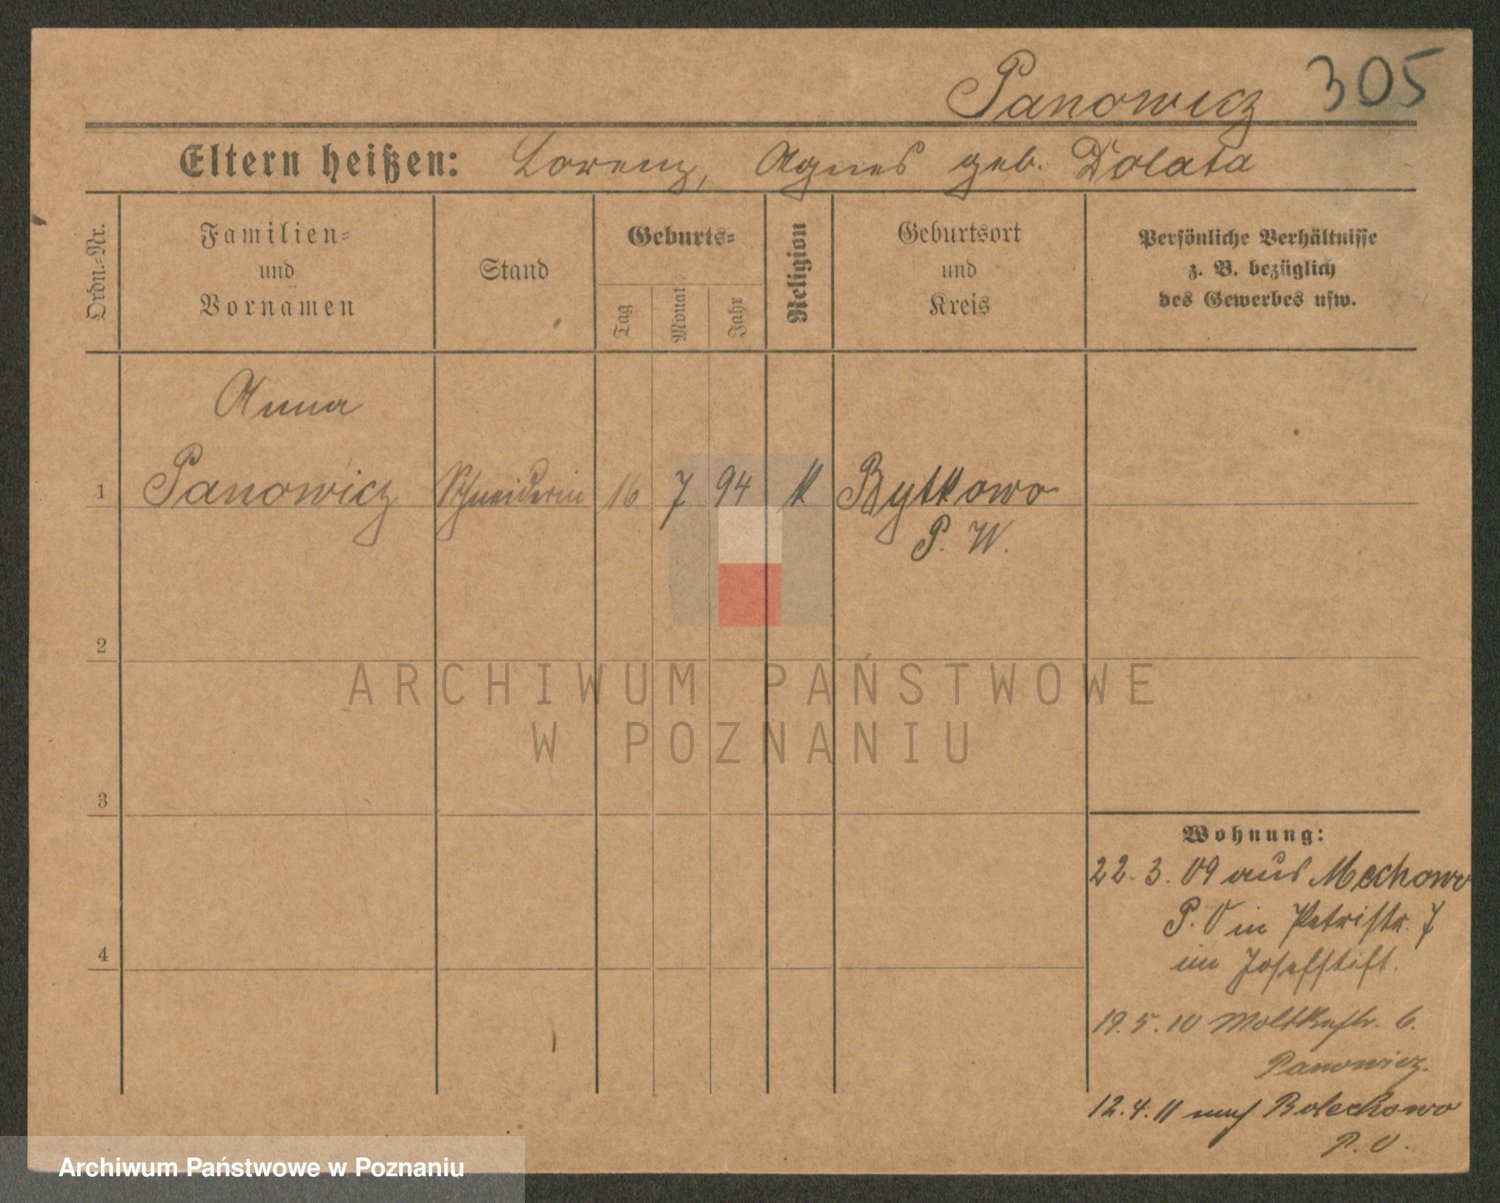 Panowicz 305
Eltern heißen: Lorenz, Agnes geb. Dolata
Ordn.-Nr.
Familien-
und
Vornamen
Stand
Geburts-
Tag
Monat
Jahr
Religion
Geburtsort
und
Kreis
Persönliche Verhältnisse
z. B. bezüglich
des Gewerbes usw.
Anna
1 Panowicz Schneiderin 16 7 94 K Rytkowo
P. W.
2
ARCHIWUM PAŃSTWOWE
W POZNANIU
3
Wohnung:
22. 3. 09 aus Mechowo
P. O in Petristr. 7
im Josefstift.
4
19. 5. 10 Moltkestr. 6.
Panowicz.
12. 4. 11 nach Bolechowo
P. O.
Archiwum Państwowe w Poznaniu